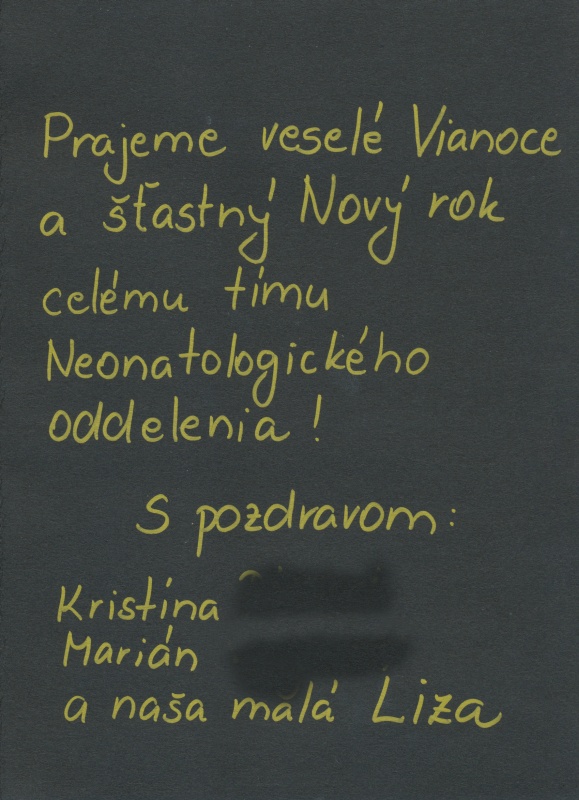 Prajeme veselé Vianoce
a šťastný Nový rok
celému tímu
Neonatologického
oddelenia!
S pozdravom:
Kristína
Marián
a naša malá Liza